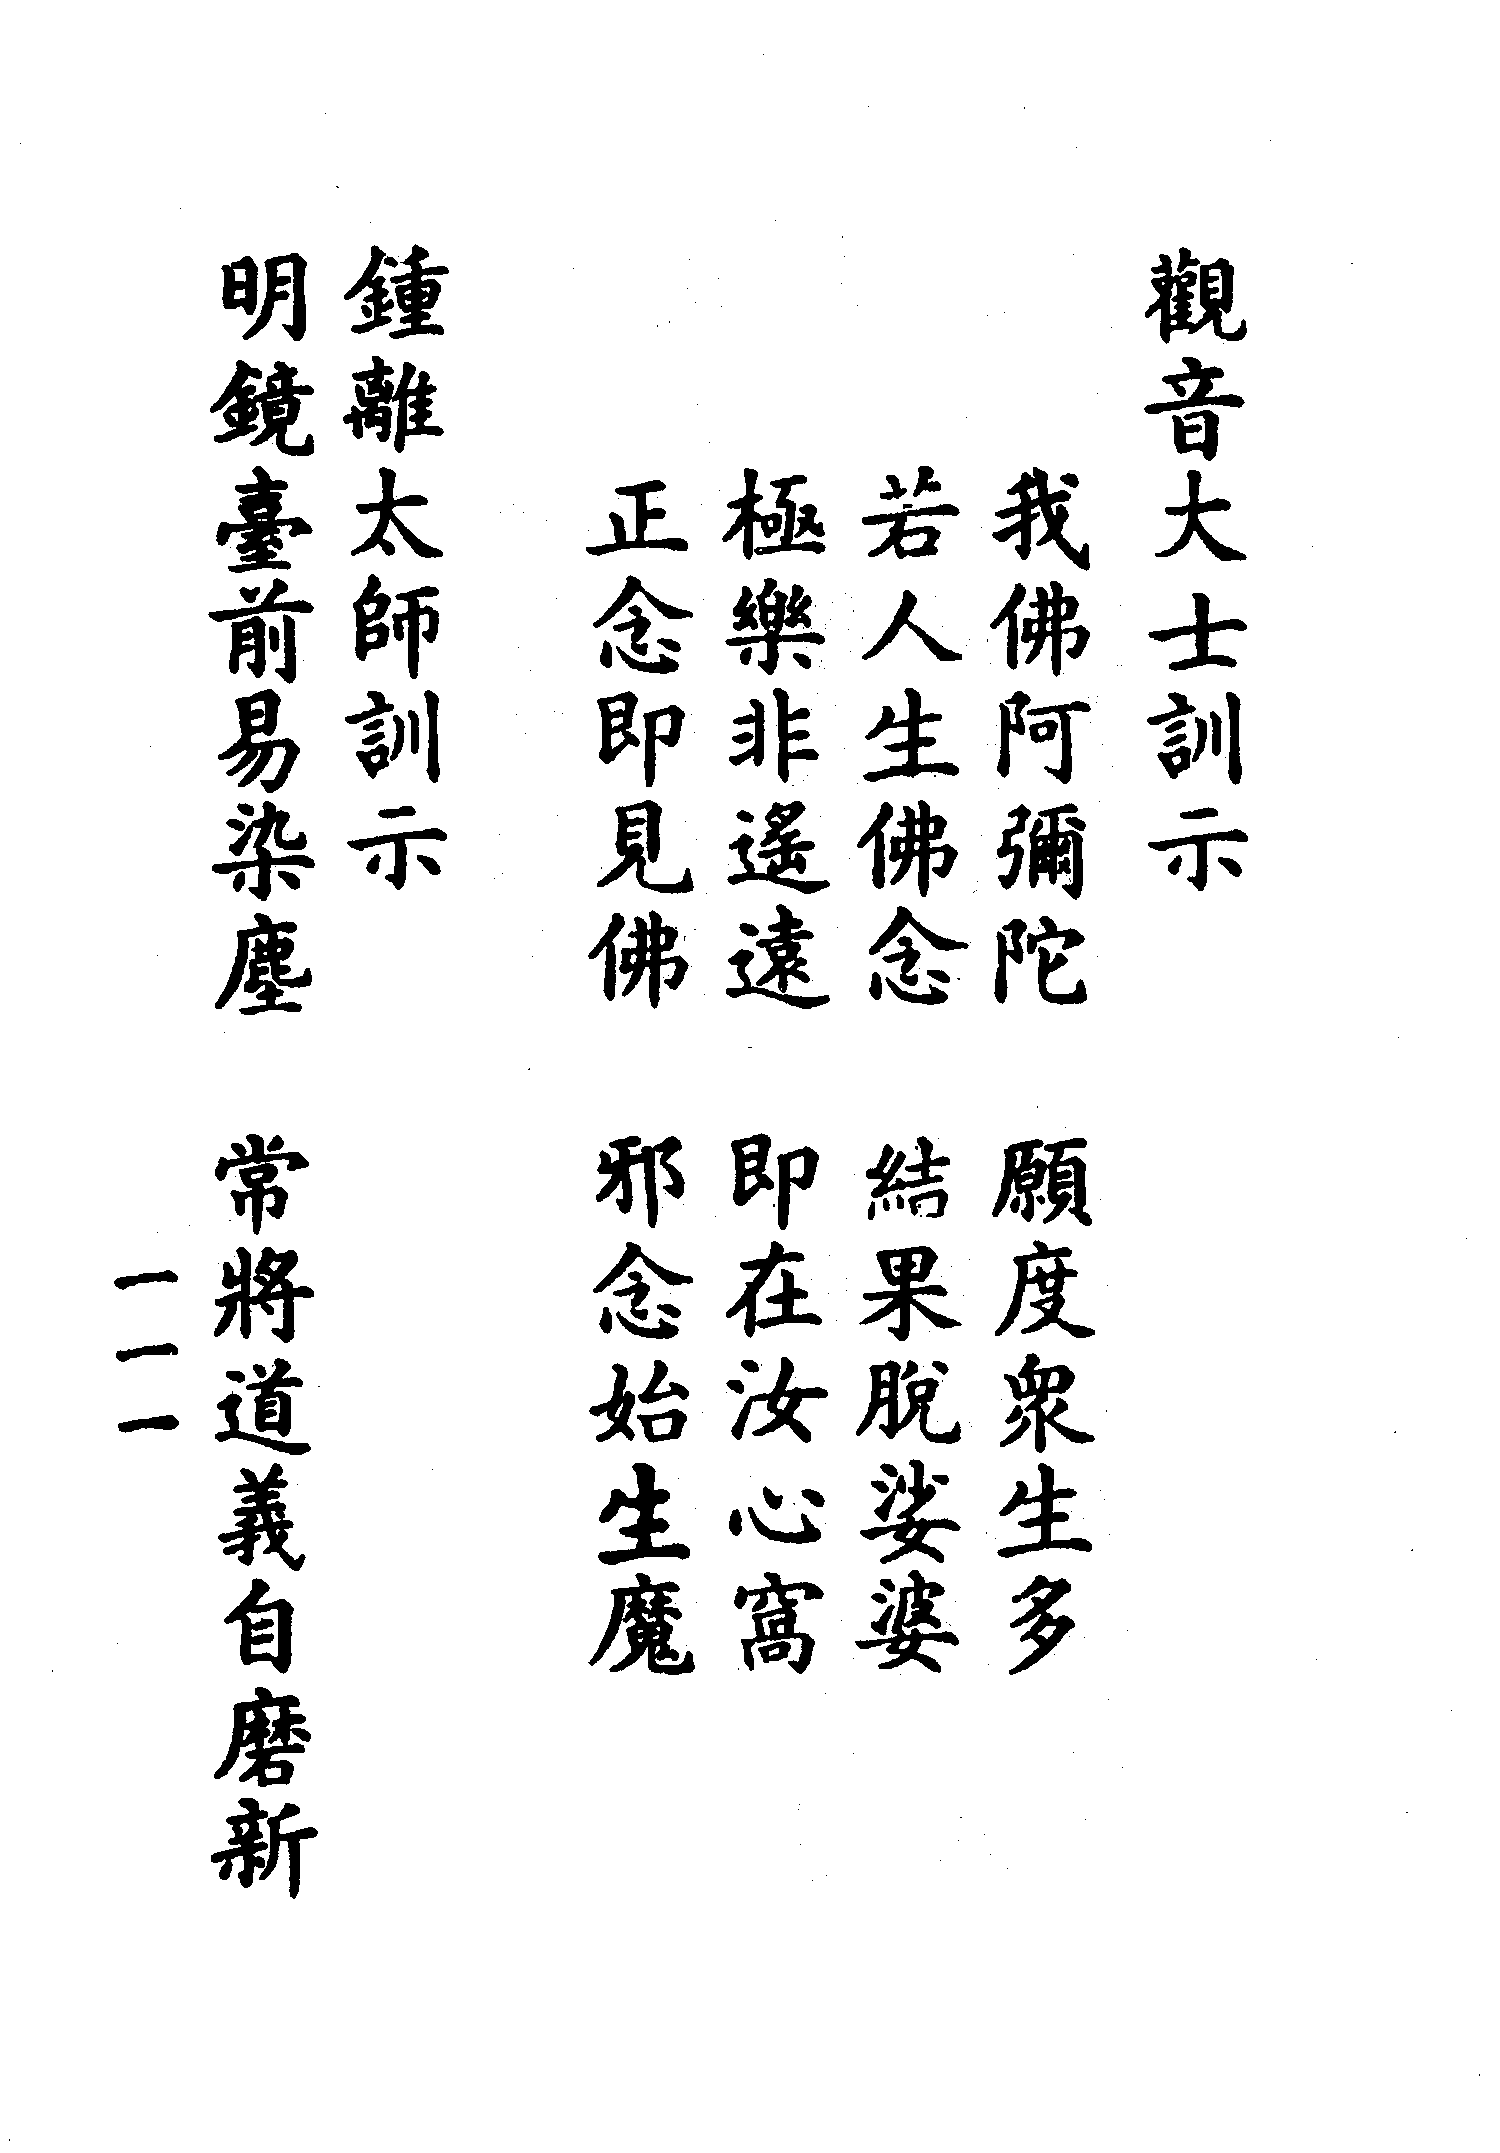 觀音大士訓示
我佛阿彌陀　願度衆生多
若人生佛念　結果脫娑婆
極樂非遙遠　即在汝心窩
正念即見佛　邪念始生魔
鍾離太師訓示
明鏡臺前易染塵　常將道義自磨新
一一一